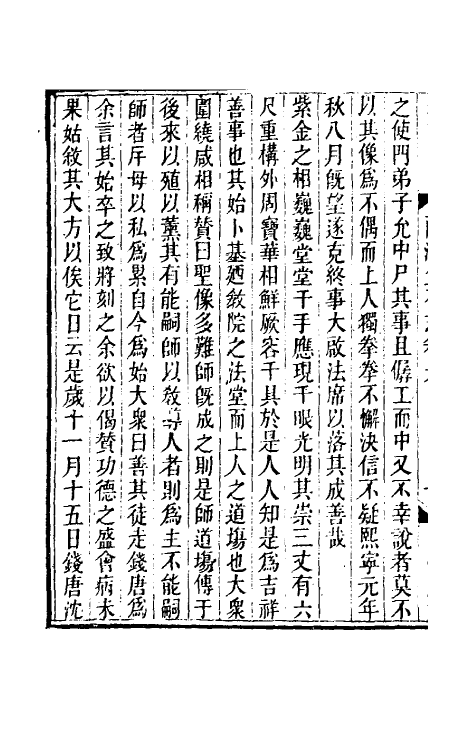 之使門弟子允中尸其事且僝工而中又不幸說者莫不
以其像爲不偶而上人獨拳拳不懈決信不疑熙寧元年
秋八月旣望遂克終事大啟法席以落其成善哉
紫金之相巍巍堂堂千手應現千眼光明其崇三丈有六
尺重構外周寶華相鮮厥容千具於是人人知是爲吉祥
善事也其始卜基廼敎院之法堂而上人之道場也大衆
圍繞咸相稱贊曰聖像多難師旣成之則是師道場傳于
後來以殖以薰其有能嗣師以敎導人者則爲主不能嗣
師者斥毋以私爲累自今爲始大衆曰善其徒走錢唐爲
余言其始卒之致將刻之余欲以偈贊功德之盛會病未
果姑敘其大方以俟它日云是歲十一月十五日錢唐沈